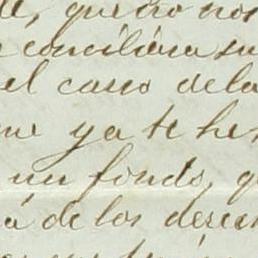 que no nos
conciliara su
el caso de la
que ya te he
un fondo, q
á de los desea